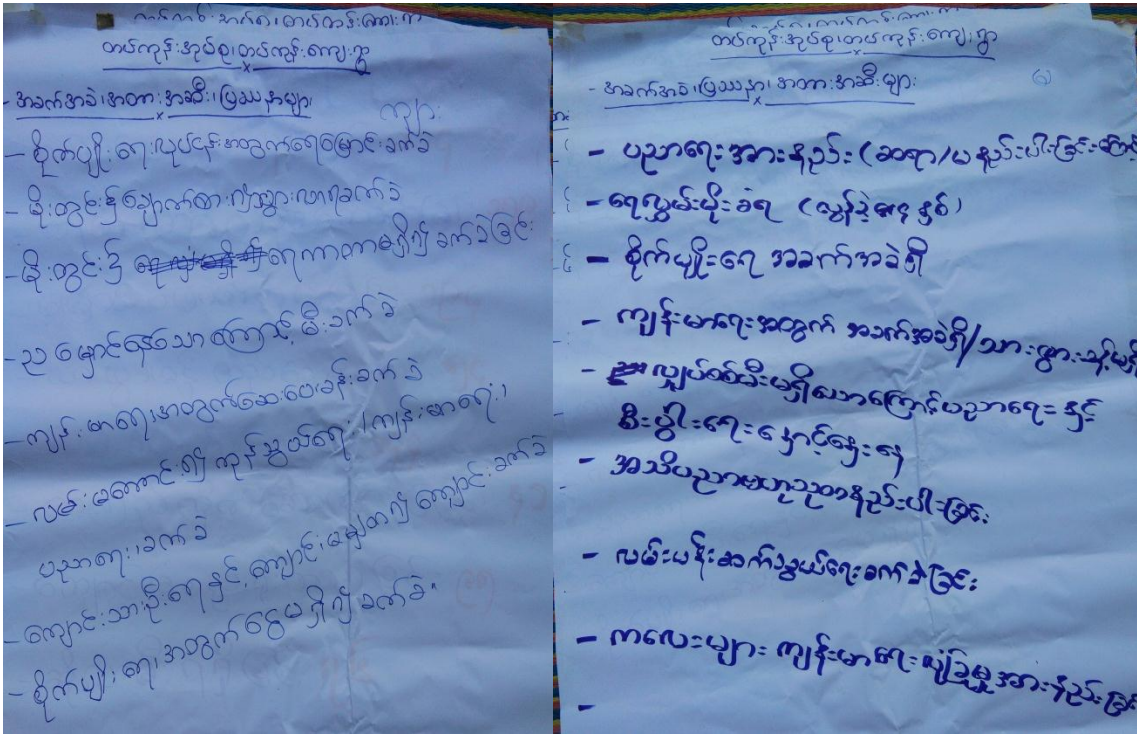 တပ်ကုန်းအုပ်စု၊တပ်ကုန်းကျေးရွာ
- အခက်အခဲ၊အတားအဆီး၊ပြဿနာများ
- စိုက်ပျိုးရေးလုပ်ငန်းအတွက်ရေမြောင်းခက်ခဲ
- မိုးတွင်း၌ချောက်ထား၍သွားလာရခက်ခဲ
- မိုးတွင်း၌ ရေကာတာမရှိ၍ခက်ခဲခြင်း
- ည မှောင်နေသောကြောင့် မီးခက်ခဲ
- ကျန်းမာရေးအတွက်ဆေးပေးခန်းခက်ခဲ
- လမ်းမကောင်း၍ ကုန်သွယ်ရေး/ကျန်းမာရေး၊
ပညာရေးခက်ခဲ
- ကျောင်းသားဦးရေနှင့် ကျောင်းမမျှတ၍ ကျောင်းခက်ခဲ
- စိုက်ပျိုးရေးအတွက်ငွေမရှိ၍ခက်ခဲ။
တပ်ကုန်းအုပ်စု၊တပ်ကုန်းကျေးရွာ
- အခက်အခဲ၊ပြဿနာ၊အတားအဆီးများ
- ပညာရေးအားနည်း(ဆရာ/မ နည်းပါးခြင်းကြောင့်
- ရေလွှမ်းမိုးခံရ (လွန်ခဲ့သော နှစ်)
- စိုက်ပျိုးရေ အခက်အခဲရှိ
- ကျန်းမာရေးအတွက် အခက်အခဲရှိ/သားဖွားခန့်မရှိ
- လျှပ်စစ်မီးမရှိသောကြောင့်ပညာရေးနှင့်
စီးပွါးရေးနှောင့်နှေးနေ
- အသိပညာဗဟုသုတနည်းပါးခြင်း
- လမ်းပန်းဆက်သွယ်ရေးခက်ခဲခြင်း
- ကလေးများ ကျန်းမာရေးယုံကြည်မှုအားနည်းခြင်း